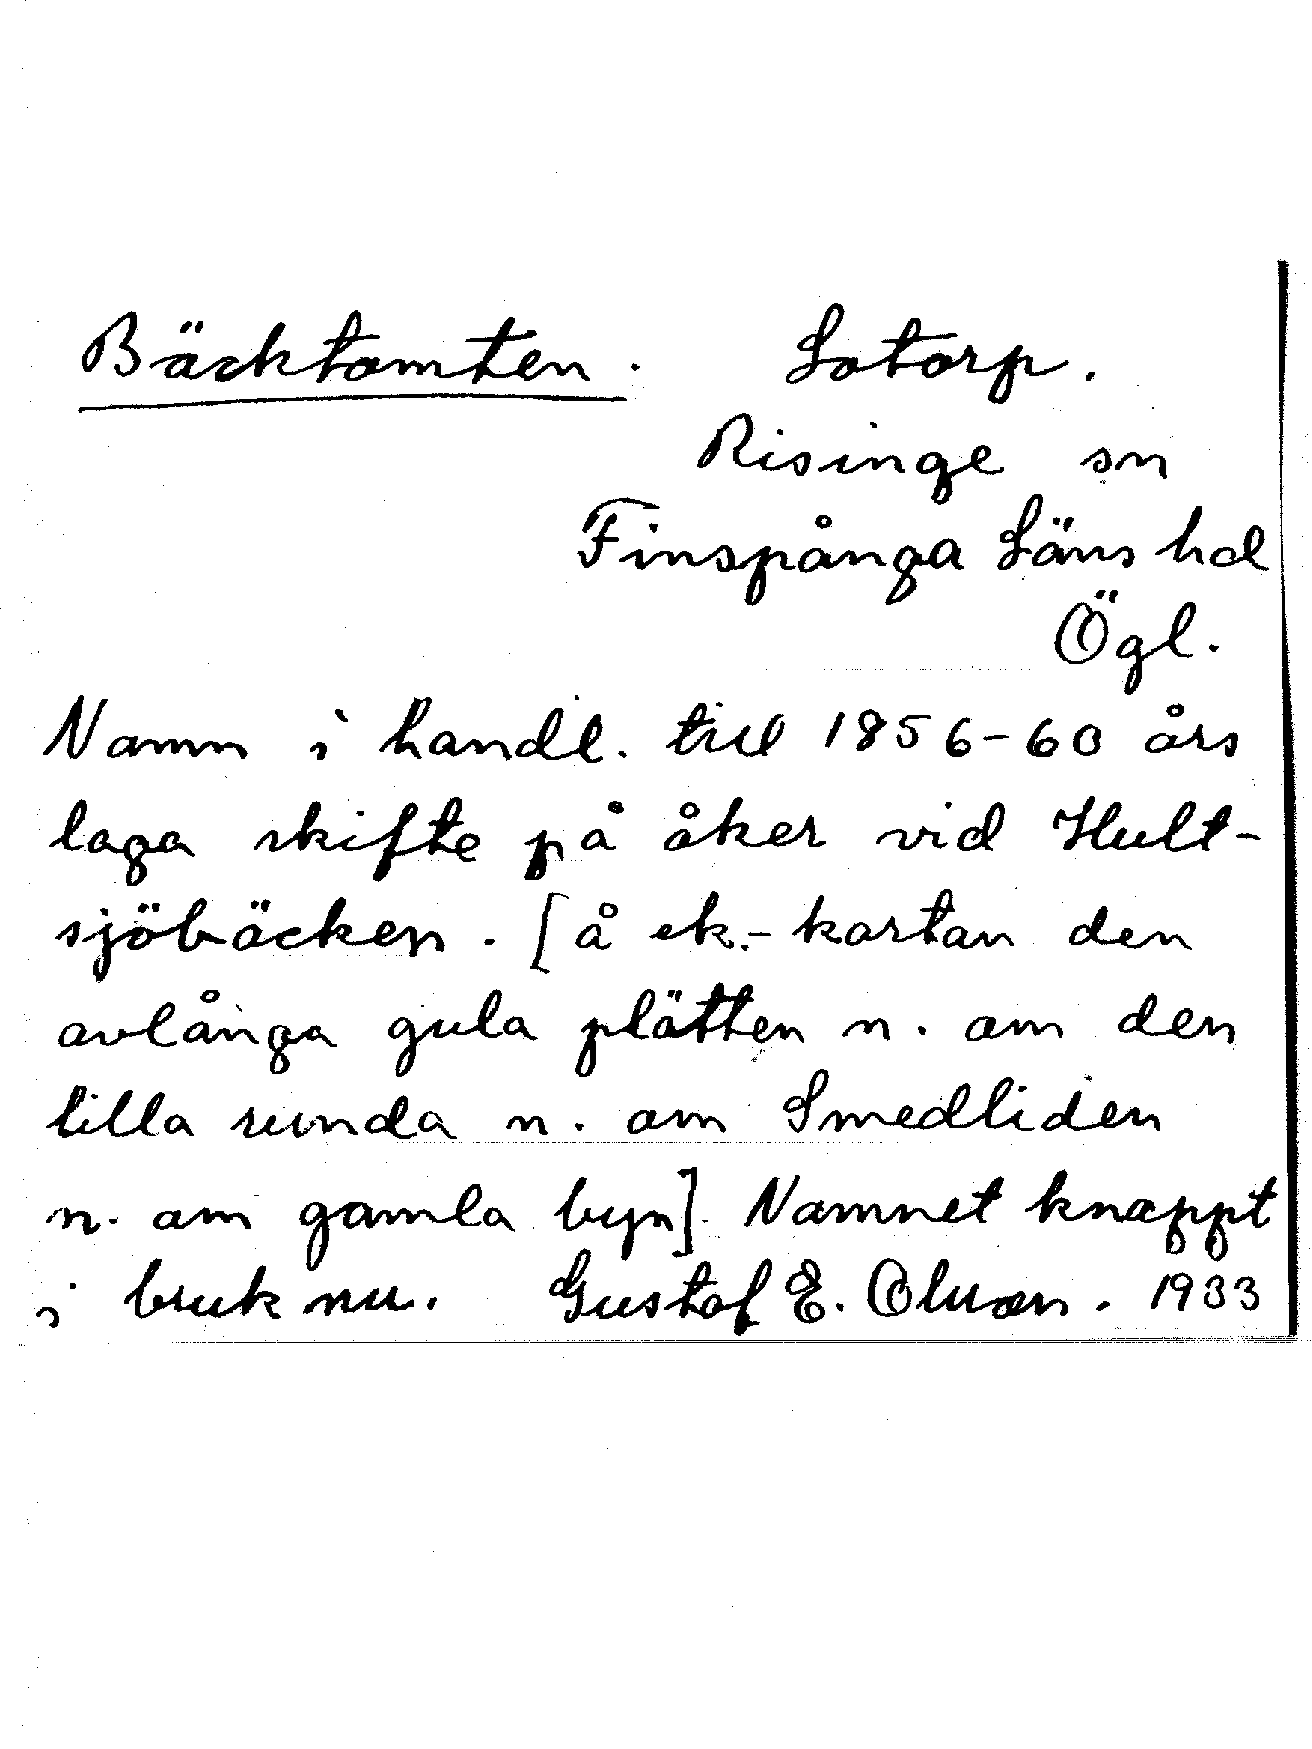 Bäcktomten. Lotorp.
Risinge sn
Finspånga Läns hd
Ögl.
Namn i handl. till 1856-60 års
laga skifte på åker vid Hult-
sjöbäcken. [å ek.-kartan den
avlånga gula plätten n. om den
lilla runda n. om Smedliden
n. om gamla byn]. Namnet knappt
i bruk nu. Gustaf E. Olsson. 1933